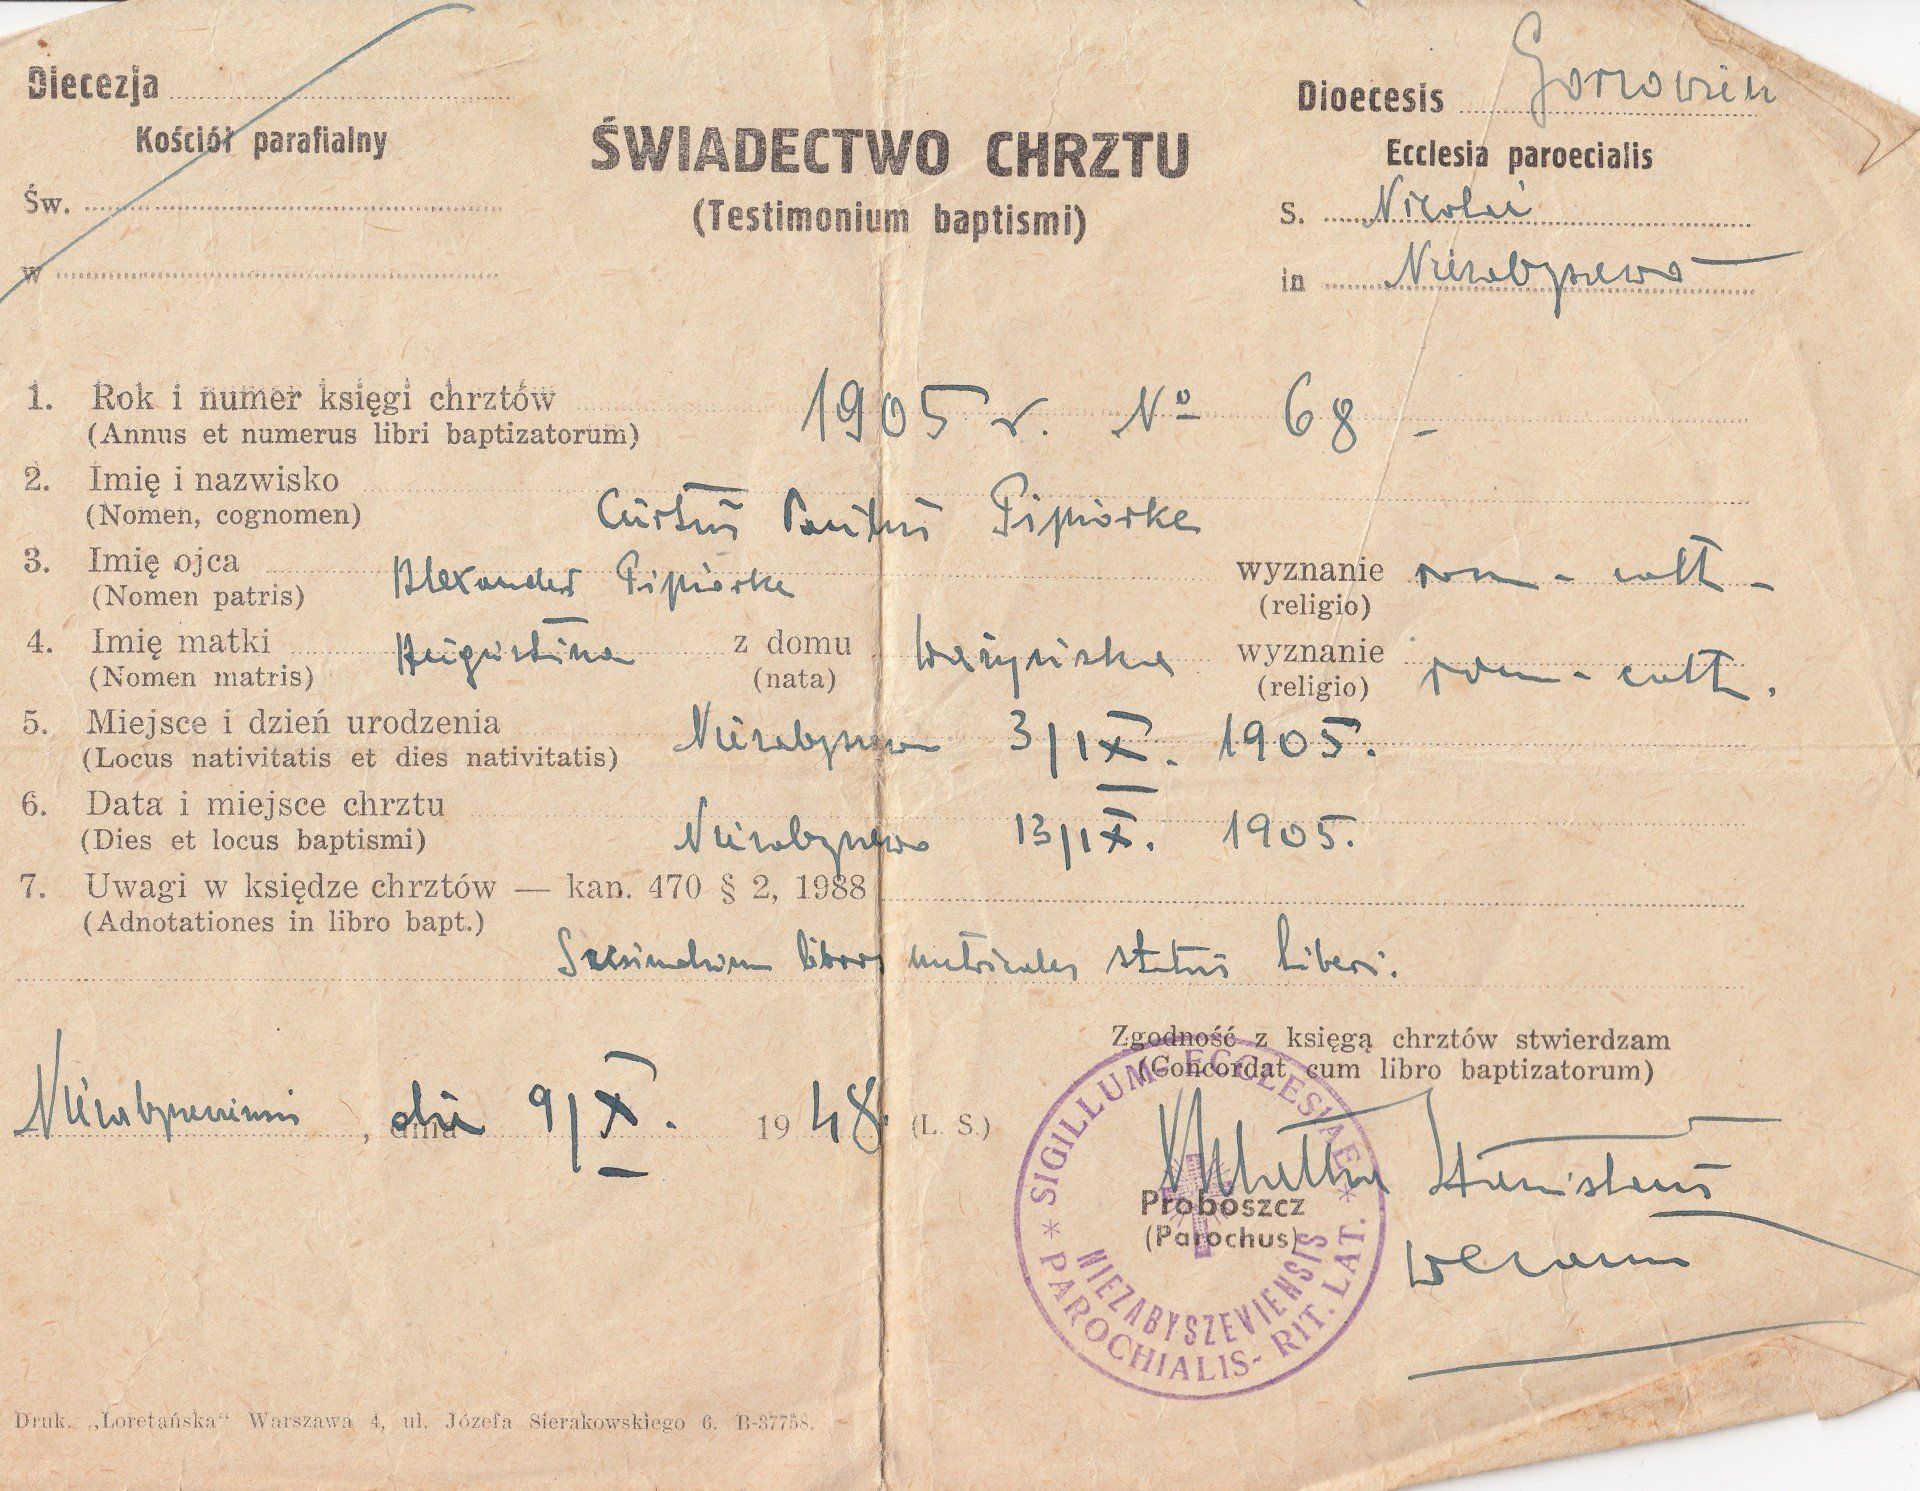 Diecezja
Kościół parafialny
Św.
w
ŚWIADECTWO CHRZTU
(Testimonium baptismi)
Dioecesis
Ecclesia paroecialis
S. Nicolai
in Niezabyszewo
1. Rok i numer księgi chrztów 1905 r. Nº 68 -
(Annus et numerus libri baptizatorum)
2. Imię i nazwisko
(Nomen, cognomen) Curtus Paulus Pipiorke
3. Imię ojca Alexander Pipiorke wyznanie rom - cath -
(Nomen patris) (religio)
4. Imię matki Augustina z domu wyznanie rom - cath.
(Nomen matris) (nata) (religio)
5. Miejsce i dzień urodzenia Niezabyszewo 3/IX. 1905.
(Locus nativitatis et dies nativitatis)
6. Data i miejsce chrztu Niezabyszewo 13/IX. 1905.
(Dies et locus baptismi)
7. Uwagi w księdze chrztów — kan. 470 § 2, 1988
(Adnotationes in libro bapt.)
Secundum libros matricales status liberi.
Zgodność z księgą chrztów stwierdzam
(Concordat cum libro baptizatorum)
, dnia die 9/X. 1948. (L. S.)
Stanislaus
Proboszcz
(Parochus)
* SIGILLUM ECCLESIAE * PAROCHIALIS - RIT. LAT.
NIEZABYSZEVIENSIS
Druk. „Loretańska“ Warszawa 4, ul. Józefa Sierakowskiego 6. B-37758.